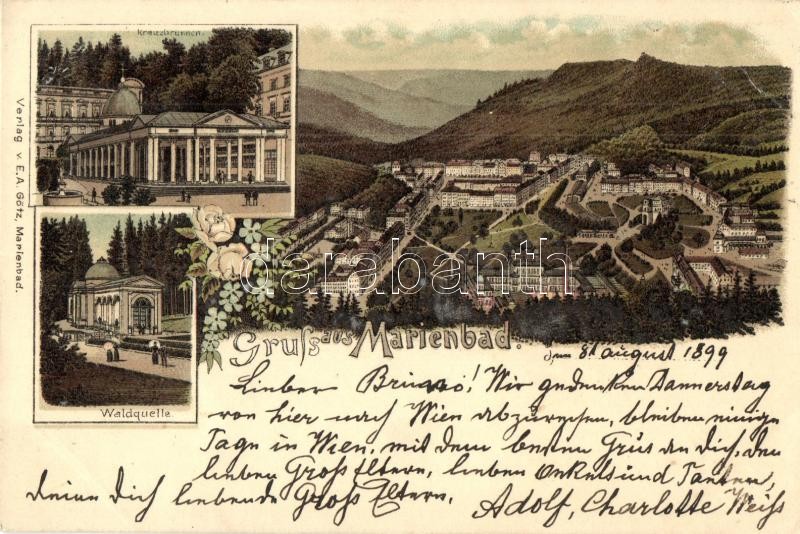 Kreuzbrunnen.
Verlag v. E.A. Götz, Marienbad.
Waldquelle.
darabanth
Gruss aus Marienbad.
den 8t August 1899
Lieber Bruno! Wir gedenken Dannerstag
von hier nach Wien abzureisen, bleiben einige
Tage in Wien, mit dem besten Grus an dich, den
lieben Gross Eltern, lieben Onkels und Tanten,
deine dich liebende Gross Eltern.
Adolf, Charlotte Weiss